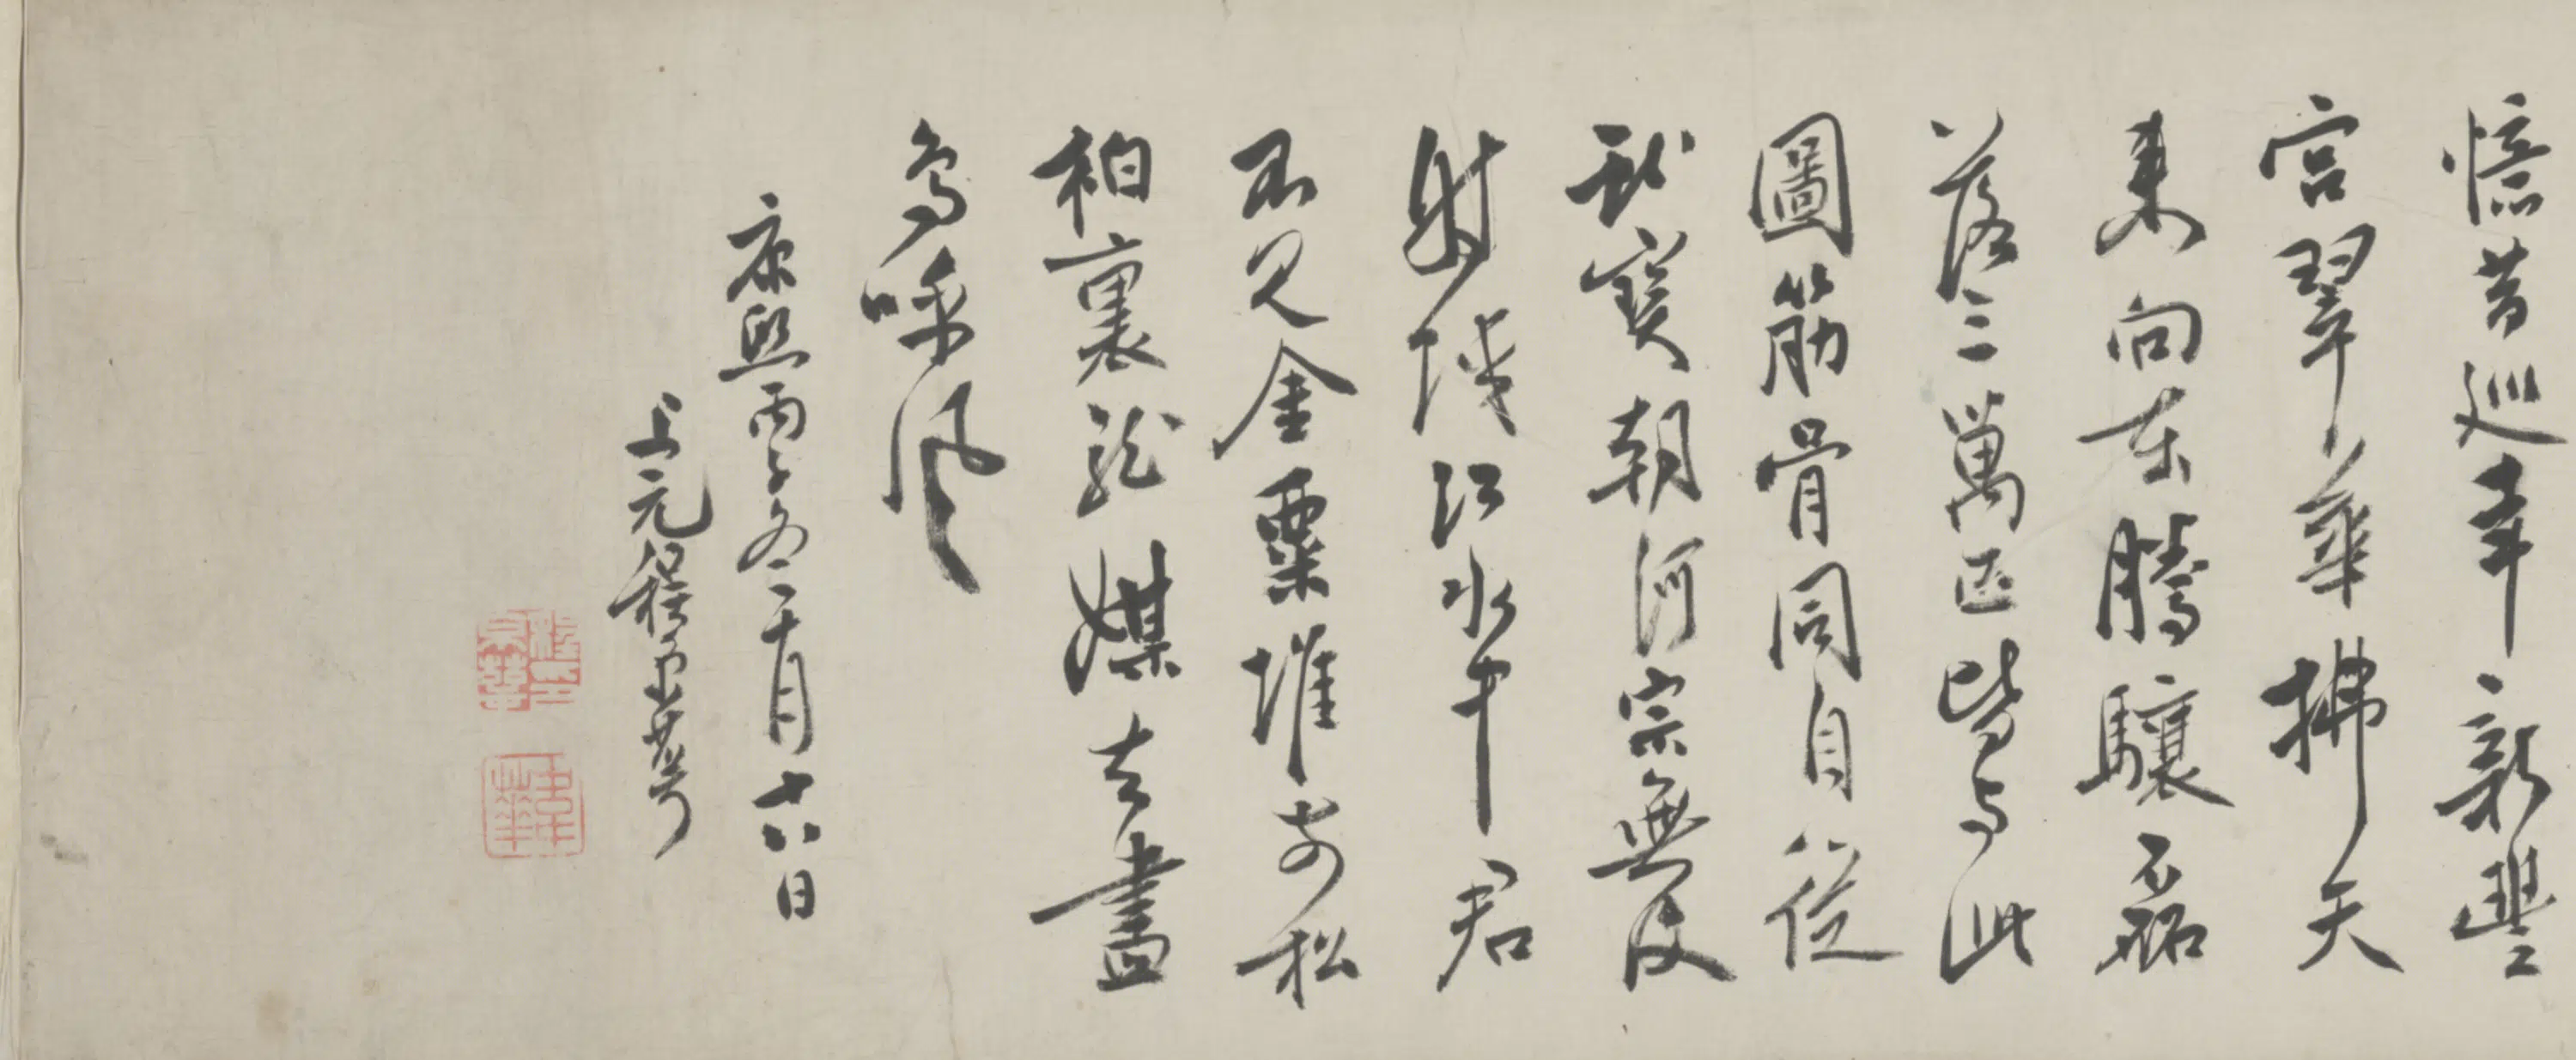 憶昔巡幸新豐
宮翠華拂天
来向東騰驤磊
落三萬匹皆与此
圖筋骨同自從
献寶朝河宗無復
射蛟江水中君
不見金粟堆前松
柏裏龍媒去盡
鳥呼風
康熙丙子冬十月十八日
上元程京萼
程印京萼
韋華